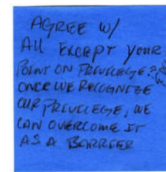 AGREE W/
All EXCEPT YOUR
POINT ON PRIVILEGE?
ONCE WE RECOGNIZE
OUR PRIVILEGE, WE
CAN OVERCOME IT
AS A BARRIER